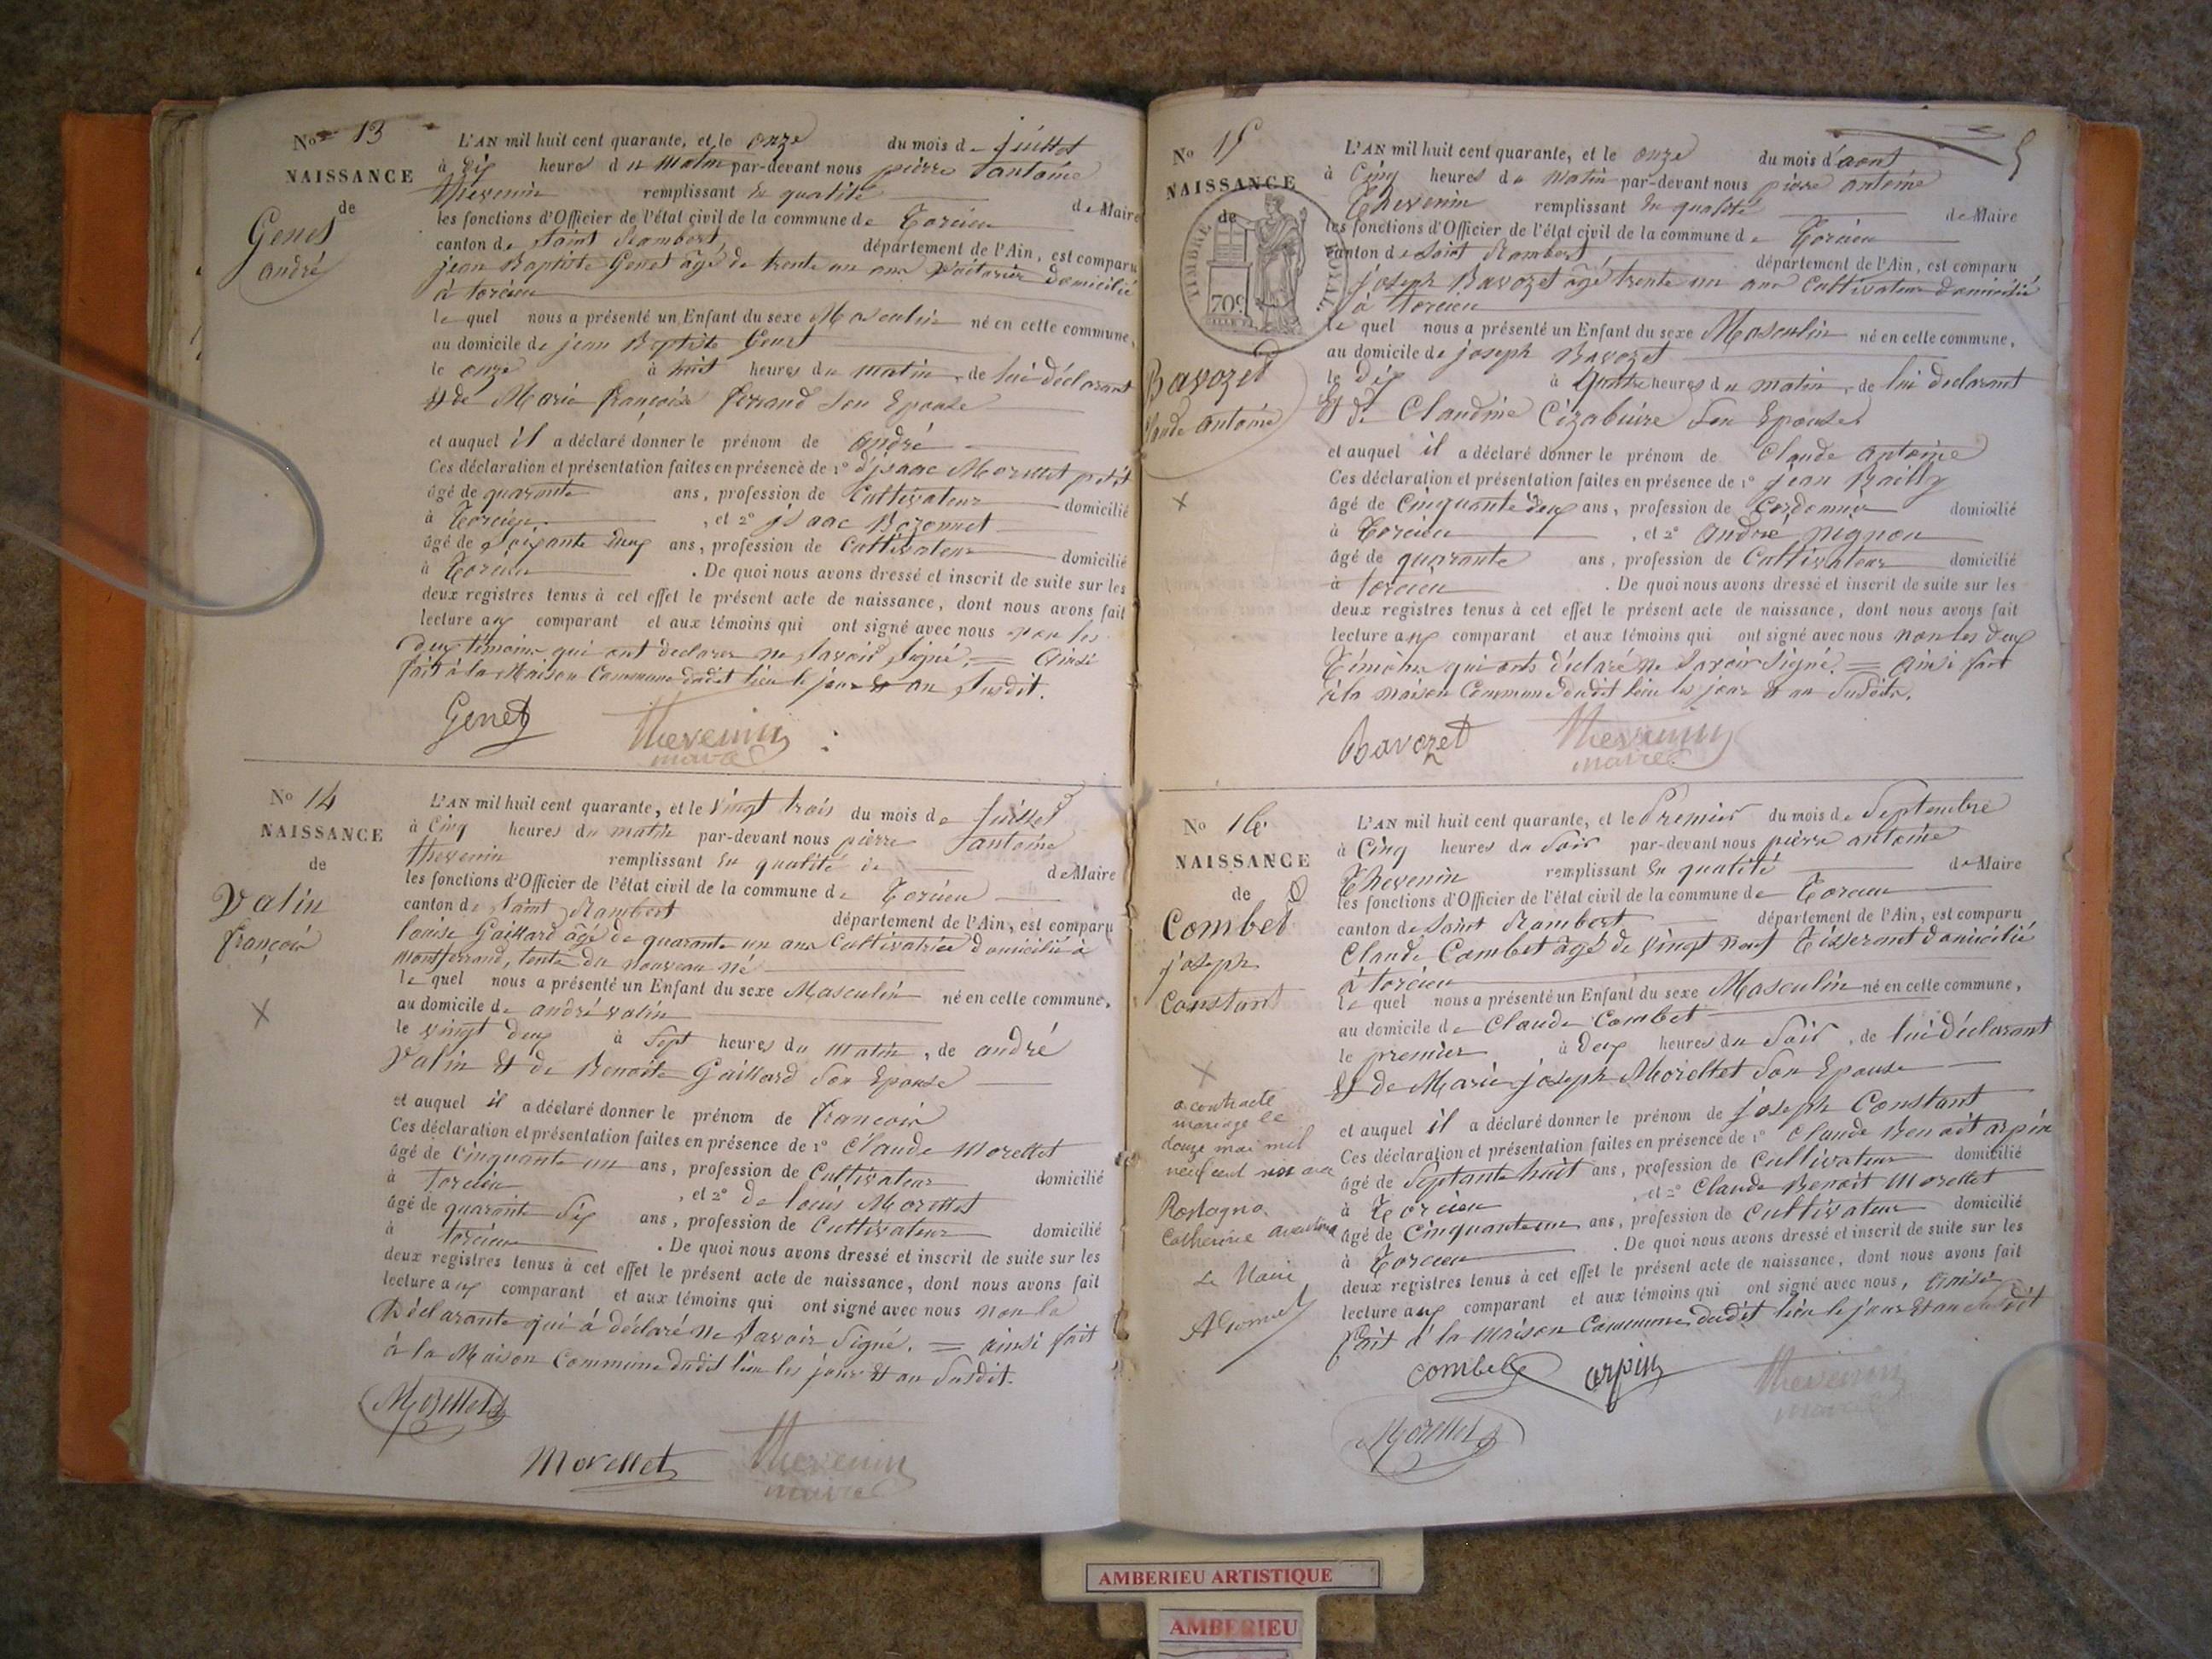 No 13
NAISSANCE
de
Genet
andré
L'AN mil huit cent quarante, et le onze du mois de juillet
à dix heures du matin par-devant nous pierre antoine
thevenin remplissant en qualité de Maire
les fonctions d'Officier de l'état civil de la commune de Torcieu
canton de Saint Rambert, département de l'Ain, est comparu
jean Baptiste Genet âgé de trente un ans domicilié
à torcieu
le quel nous a présenté un Enfant du sexe Masculin né en cette commune,
au domicile de jean Baptiste Genet
le onze à huit heures du matin, de lui déclarant
Et de Marie françoise ferrand son Epouse
et auquel il a déclaré donner le prénom de andré
Ces déclaration et présentation faites en présence de 1° d'jsaac Morellet petit
âgé de quarante ans, profession de Cultivateur domicilié
à Torcieu, et 2° jsaac Bozonnet
âgé de soixante deux ans, profession de Cultivateur domicilié
à Torcieu. De quoi nous avons dressé et inscrit de suite sur les
deux registres tenus à cet effet le présent acte de naissance, dont nous avons fait
lecture aux comparant et aux témoins qui ont signé avec nous non les
deux témoins qui ont déclarer ne savoir signé. = Ainsi
fait à la Maison Commune dudit lieu le jour et an susdit.
Genet Thevenin
maire
No 14
NAISSANCE
de
Valin
françois
X
L'AN mil huit cent quarante, et le vingt trois du mois de juillet
à Cinq heures du matin par-devant nous pierre antoine
thevenin remplissant en qualité de de Maire
les fonctions d'Officier de l'état civil de la commune de Torcieu
canton de Saint Rambert département de l'Ain, est comparu
louise Gaillard âgé de quarante un ans Cultivatrice domicilié à
montferrand, tente du nouveau né
le quel nous a présenté un Enfant du sexe Masculin né en cette commune,
au domicile de andré valin
le vingt deux à sept heures du matin, de andré
Valin Et de Benoite Gaillard son Epouse
et auquel il a déclaré donner le prénom de françois
Ces déclaration et présentation faites en présence de 1° Claude Morellet
âgé de cinquante un ans, profession de Cultivateur domicilié
à torcieu, et 2° de louis Morellet
âgé de quarante six ans, profession de Cultivateur domicilié
à torcieu. De quoi nous avons dressé et inscrit de suite sur les
deux registres tenus à cet effet le présent acte de naissance, dont nous avons fait
lecture aux comparant et aux témoins qui ont signé avec nous non la
Déclarante qui à déclaré ne savoir signé. = ainsi fait
à la Maison Commune dudit lieu les jour Et an susdit.
Morellet
Morellet Thevenin
maire
5
No 15
NAISSANCE
de
TIMBRE ROYAL
70c
Bavozet
Claude antoine
X
L'AN mil huit cent quarante, et le onze du mois d'aout
à Cinq heures du matin par-devant nous pierre antoine
Thevenin remplissant en qualité de Maire
les fonctions d'Officier de l'état civil de la commune de Torcieu
canton de Saint Rambert département de l'Ain, est comparu
joseph Bavozet âgé trente un ans Cultivateur domicilié
à torcieu
le quel nous a présenté un Enfant du sexe Masculin né en cette commune,
au domicile de joseph Bavozet
le dix à quatre heures du matin, de lui declarant
Et de Claudine Cizabuire son Epouse
et auquel il a déclaré donner le prénom de Claude antoine
Ces déclaration et présentation faites en présence de 1° jean Bailly
âgé de cinquante deux ans, profession de Cordonnier domicilié
à Torcieu, et 2° andré pignon
âgé de quarante ans, profession de Cultivateur domicilié
à torcieu. De quoi nous avons dressé et inscrit de suite sur les
deux registres tenus à cet effet le présent acte de naissance, dont nous avons fait
lecture aux comparant et aux témoins qui ont signé avec nous non les deux
Témoins qui onts déclaré ne savoir signé. = ainsi fait
à la maison Commune dudit lieu les jour Et an susdits.
Bavozet Thevenin
maire
No 16
NAISSANCE
de
Combet
joseph
Constant
X
a contracté
mariage le
douze mai mil
neuf cent avec
Rostagno
Catherine
Le Maire
L'AN mil huit cent quarante, et le Premier du mois de Septembre
à Cinq heures du soir par-devant nous pierre antoine
Thevenin remplissant en qualité de Maire
les fonctions d'Officier de l'état civil de la commune de Torcieu
canton de Saint Rambert département de l'Ain, est comparu
Claude Combet âgé de vingt neuf Tisserant domicilié
à torcieu
le quel nous a présenté un Enfant du sexe Masculin né en cette commune,
au domicile de Claude Combet
le premier à deux heures du soir, de lui déclarant
Et de Marie joseph Morellet son Epouse
et auquel il a déclaré donner le prénom de joseph Constant
Ces déclaration et présentation faites en présence de 1° Claude Benoit arpin
âgé de Septante huit ans, profession de Cultivateur domicilié
à Torcieu, et 2° Claude Benoit Morellet
âgé de Cinquante un ans, profession de Cultivateur domicilié
à Torcieu. De quoi nous avons dressé et inscrit de suite sur les
deux registres tenus à cet effet le présent acte de naissance, dont nous avons fait
lecture aux comparant et aux témoins qui ont signé avec nous, ainsi
fait à la maison Commune dudit lieu le jour Et an susdit
combet arpin Thevenin
maire
Morellet
AMBERIEU ARTISTIQUE
AMBERIEU